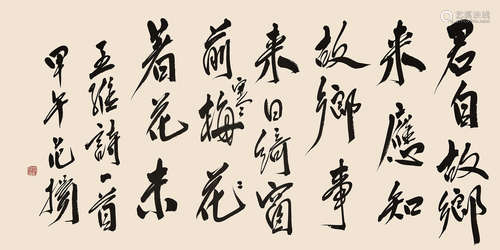 君自故鄉
来應知
故鄉事
来日綺窗
前寒梅花
著花未
王維詩一首
甲午范揚